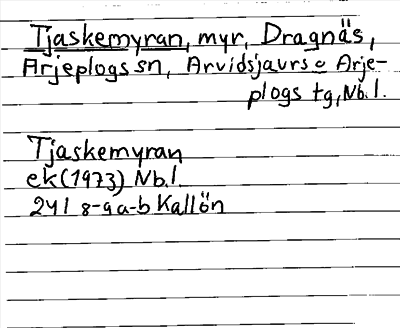 Tjaskemyran, myr, Dragnäs,
Arjeplogs sn, Arvidsjaurs o Arje-
plogs tg, Nb.l.
Tjaskemyran
ek (1973) Nb.l
24I 8-9a-b Kallön